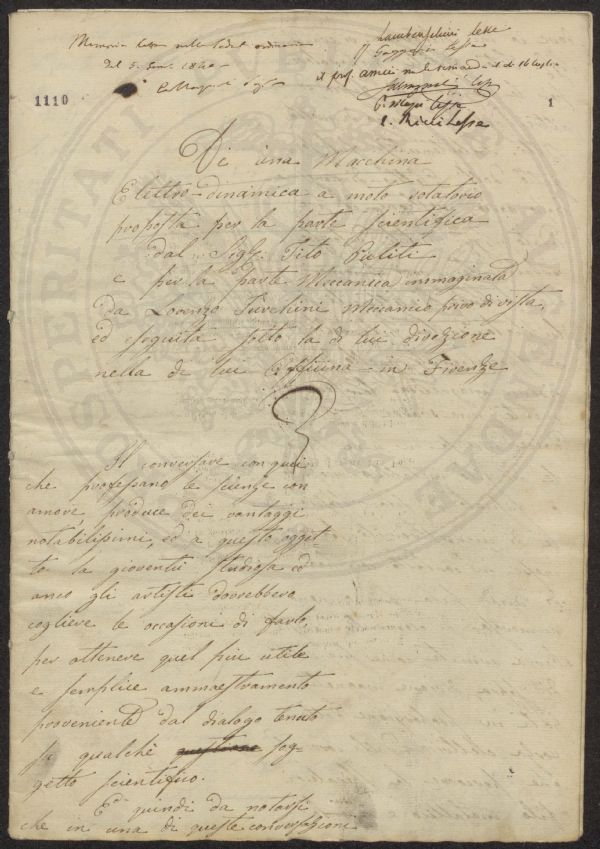 Memoria letta nella Seduta ordinaria
del 5. 1840
1110
Lambruschini lesse
Gazzeri lesse
il prof. amici
lesse
lesse
E. Ridi lesse
1
Di una Macchina
Elettro-dinamica a moto rotatorio
proposta per la parte scientifica
dal Sigr. Tito Puliti
e per la parte Meccanica immaginata
da Lorenzo Turchini Meccanico privo di vista,
ed eseguita sotto la di lui direzione
nella di lui Officina in Firenze
Il conversare con quei
che professano le scienze con
amore, produce dei vantaggi
notabilissimi, ed a questo ogget
to la gioventù studiosa ed
anco gli artisti dovrebbero
cogliere le occasioni di farlo,
per ottenere quel più utile
e semplice ammaestramento
proveniente dal dialogo tenuto
su qualche questione sog-
getto scientifico.
E quindi da notarsi
che in una di queste conversazioni